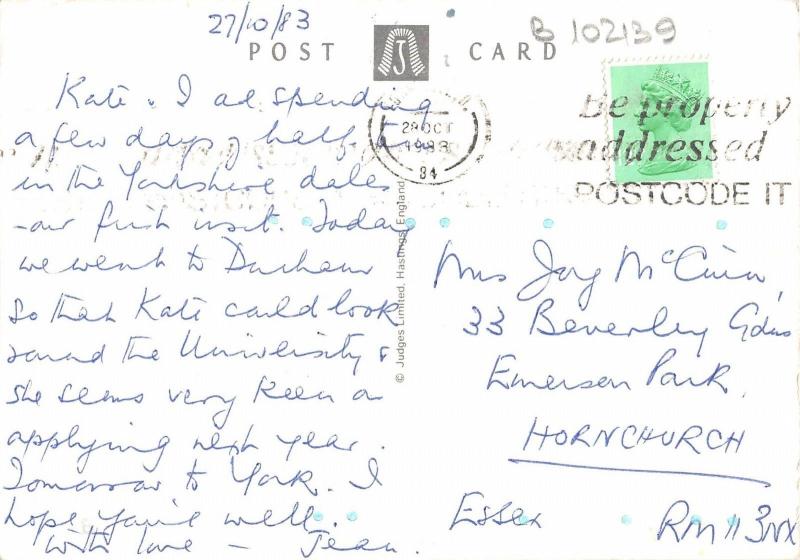 27/10/83
B 102139
POST CARD
J
Kate & I are spending
a few days of half-t
in the Yorkshire dales
- our first visit. Today
we went to Durham
so that Kate could look
round the University &
she seems very keen on
applying next year.
Tomorrow to York. I
hope you're well.
With love - Jean.
28 OCT
1983
Be properly
addressed
POSTCODE IT
© Judges Limited, Hastings, England
Mrs Joy
33 Beverley Gdns
Emerson Park,
HORNCHURCH
Essex
RM11 3NX